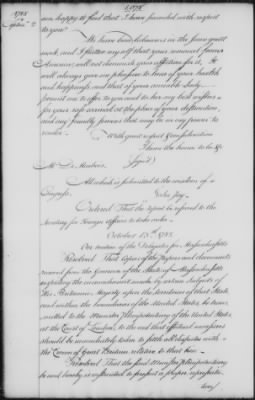 1785
am happy to find that I have succeeded with respect
to you.
We have been debtors in the same great
work, and I flatter myself that your removal from
America, will not diminish your affection for it. It
will always give me pleasure to hear of your health
and happiness, and that of your amiable Lady.
Permit me to offer to you and to her my best wishes
for your safe arrival at the place of your destination,
and any friendly offices that may be in my power to
render.
With great respect & Consideration
I have the honor to be &c
(signed)
Mr De Marbois.
All which is submitted to the wisdom of
Congress.
John Jay.
Ordered That the report be referred to the
Secretary for Foreign Affairs to take order.
October 13th 1785
On motion of the Delegates for Massachusetts
Resolved That copies of the Papers and documents
received from the Governor of the State of Massachusetts
respecting the encroachments made by certain Subjects of
His Britannic Majesty upon the territories of that State
and within the boundaries of the United States, be trans
mitted to the Minister Plenipotentiary of the United States,
at the Court of London, to the end that effectual measures
should be immediately taken to settle all disputes with
the Crown of Great Britain relative to that line.
Resolved That the said Minister Plenipotentiary
be and hereby is instructed to present a proper